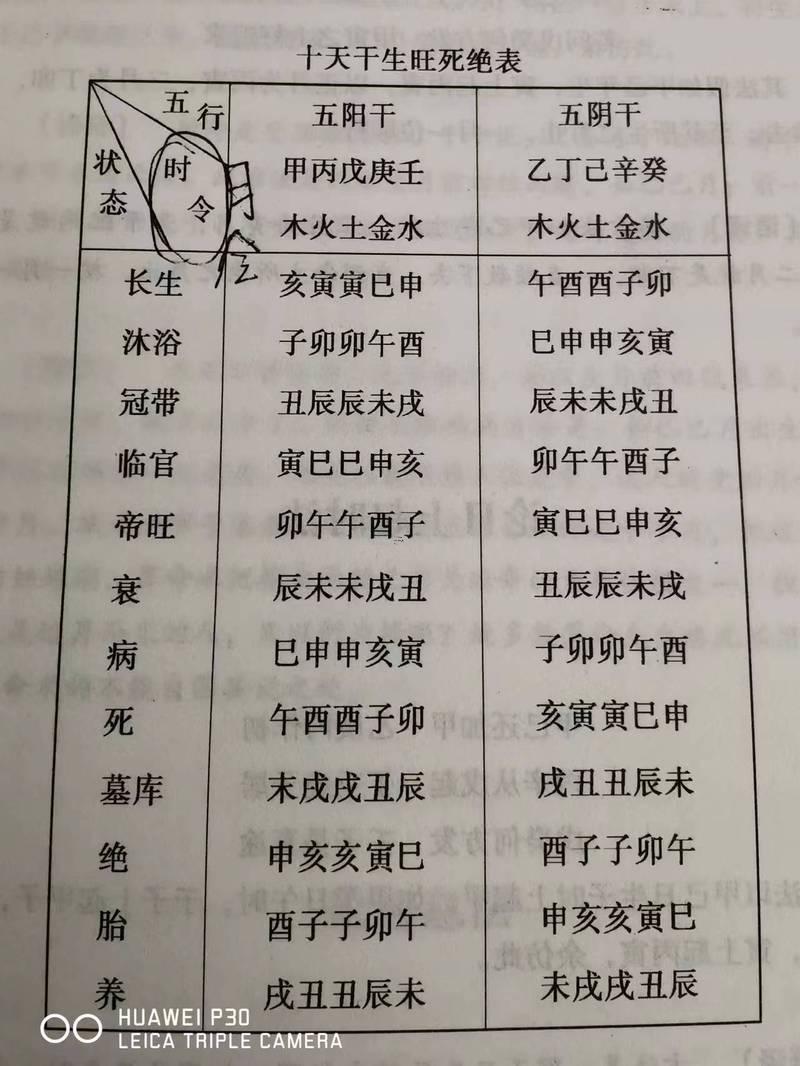 十天干生旺死绝表
五行
时令
状态
月令
五阳干 五阴干
甲丙戊庚壬 乙丁己辛癸
木火土金水 木火土金水
长生 亥寅寅巳申 午酉酉子卯
沐浴 子卯卯午酉 巳申申亥寅
冠带 丑辰辰未戌 辰未未戌丑
临官 寅巳巳申亥 卯午午酉子
帝旺 卯午午酉子 寅巳巳申亥
衰 辰未未戌丑 丑辰辰未戌
病 巳申申亥寅 子卯卯午酉
死 午酉酉子卯 亥寅寅巳申
墓库 末戌戌丑辰 戌丑丑辰未
绝 申亥亥寅巳 酉子子卯午
胎 酉子子卯午 申亥亥寅巳
养 戌丑丑辰未 未戌戌丑辰
HUAWEI P30
LEICA TRIPLE CAMERA